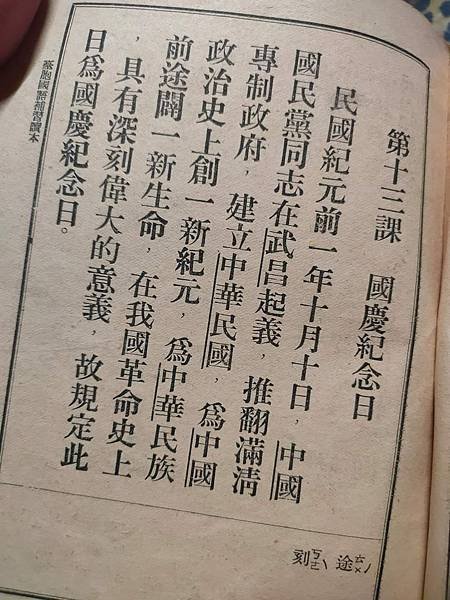 第十三課　國慶紀念日
民國紀元前一年十月十日，中國
國民黨同志在武昌起義，推翻滿清
專制政府，建立中華民國，爲中國
政治史上創一新紀元，爲中華民族
前途闢一新生命，在我國革命史上
，具有深刻偉大的意義，故規定此
日爲國慶紀念日。
途ㄊㄨˊ　刻ㄎㄜˋ
臺胞國語補習讀本